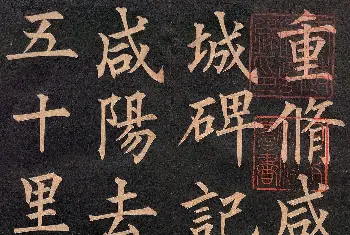 重脩咸
城碑記
咸陽去
五十里